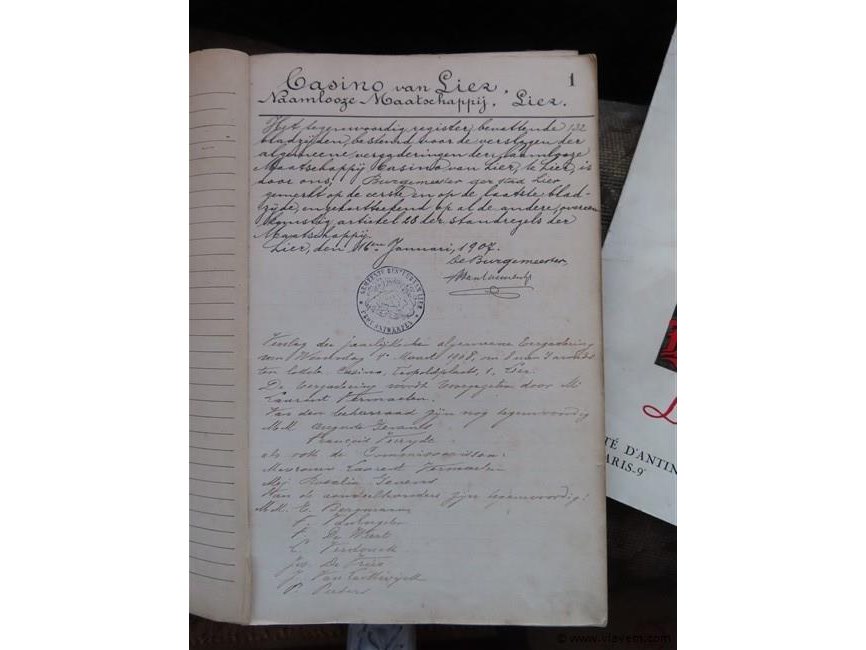 1
Casino van Lier.
Naamlooze Maatschappij. Lier.
Het tegenwoordig register, bevattende 132
bladzijden, bestemd voor de verslagen der
algemeene vergaderingen der Naamlooze
Maatschappij Casino van Lier, te Lier, is
door ons, Burgemeester der stad Lier
gemerkt op de eerste en op de laatste blad-
zijde, en gekortteekend op al de andere, overeen-
komstig artikel 28 der standregels der
Maatschappij.
Lier, den 16en Januari, 1907.
De Burgemeester,
Verslag der jaarlijksche algemeene Vergadering
van Woensdag 1n Maart 1908, om 8 uur
ten lokale Casino, Leopoldplaats, 1, Lier.
De Vergadering wordt voorgezeten door Mr
Laurent Vermaelen.
Van den beheerraad zijn nog tegenwoordig
M.M. Auguste
François
als ook de Commissarissen:
Mevrouw Laurent Vermaelen
Mej. Rosalia
Van de aandeelhouders zijn tegenwoordig:
M.M. E. Bergmann
F.
F. De Weert
C. Verdonck
Jos De Vries
J. Van
P. Peeters
TÉ D'ANTIN
ARIS-9e
© www.vlavem.com